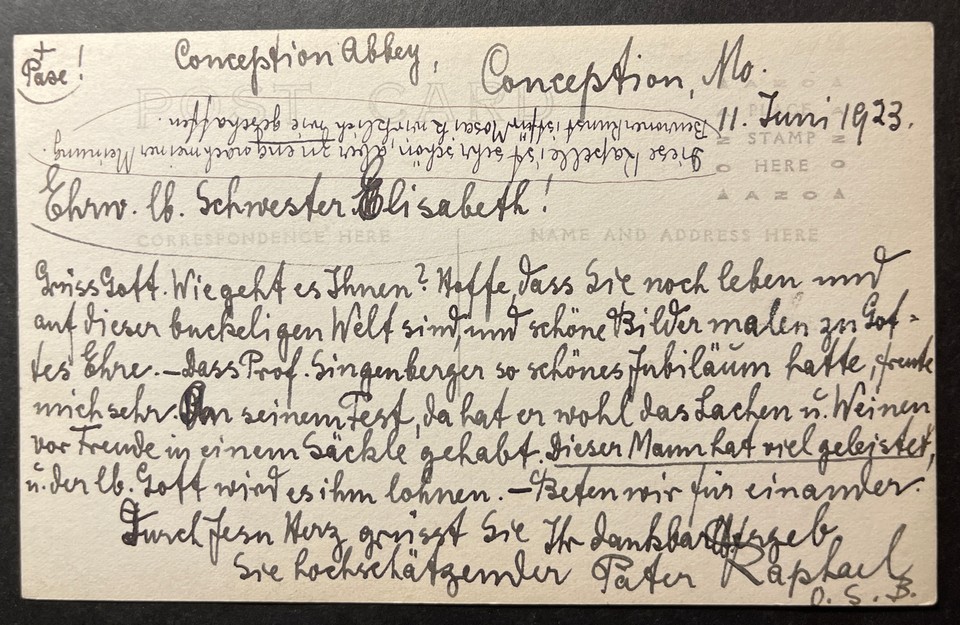 +
Pax!
Conception Abbey,
Conception, Mo.
11. Juni 1923.
POST CARD
AZO
PLACE
STAMP
HERE
AZO
Diese Kapelle ist sehr schön, aber zu eng nach meiner Meinung.
Beuronerkunst ist für Mosaik wirklich wie geschaffen.
Ehrw. lb. Schwester Elisabeth!
CORRESPONDENCE HERE
NAME AND ADDRESS HERE
Grüss Gott. Wie geht es Ihnen? Hoffe, dass Sie noch leben und
auf dieser buckeligen Welt sind, und schöne Bilder malen zu Got=
tes Ehre. – Dass Prof. Singenberger so schönes Jubiläum hatte, freute
mich sehr. An seinem Fest, da hat er wohl das Lachen u. Weinen
vor Freude in einem Säckle gehabt. Dieser Mann hat viel geleistet,
u. der lb. Gott wird es ihm lohnen. – Beten wir für einander.
Durch Jesu Herz grüsst Sie Ihr dankbar
Sie hochschätzender Pater Raphael
O. S. B.